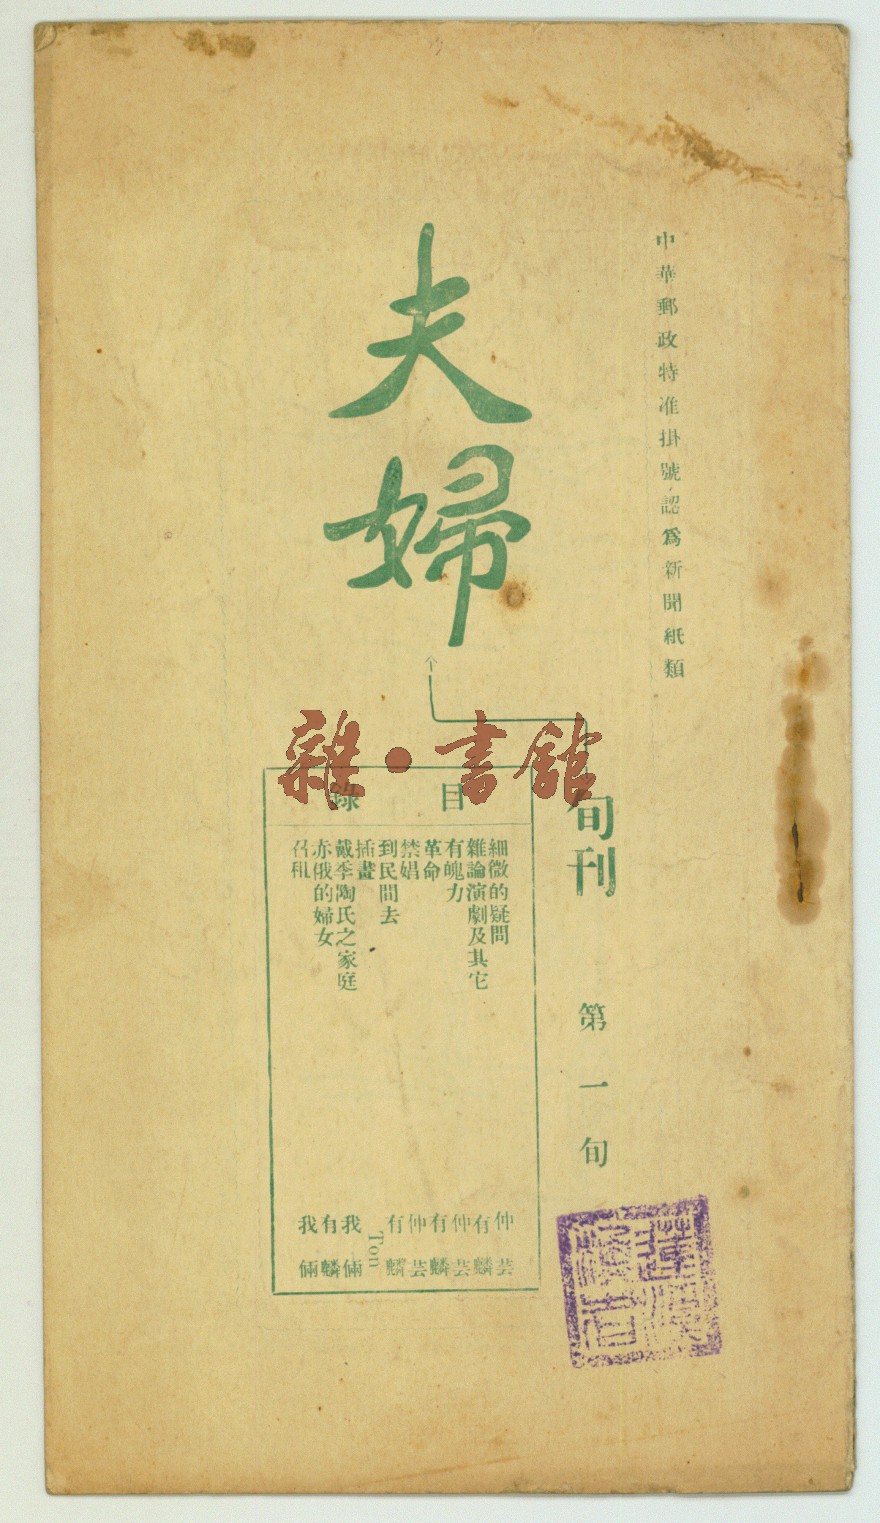 中華郵政特准掛號認爲新聞紙類
夫婦
旬刊
第一旬
雜·書館
目錄
細微的疑問 仲芸
雜論演劇及其它 有麟
有魄力 仲芸
革命 有麟
禁娼 仲芸
到民間去 有麟
插畫 Ton
戴季陶氏之家庭 我倆
赤俄的婦女 有麟
召租 我倆